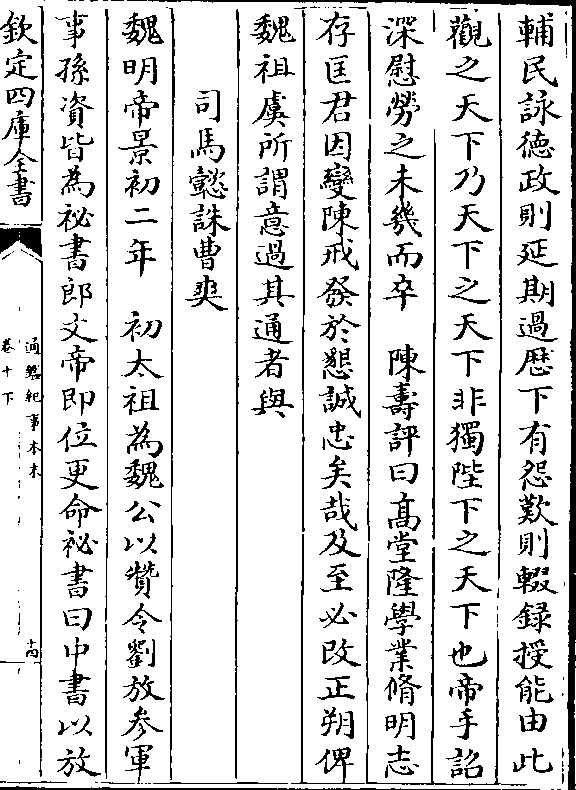 輔民詠德政則延期過厯下有怨歎則輟録授能由此
觀之天下乃天下之天下非獨陛下之天下也帝手詔
深慰勞之未幾而卒　陳壽評曰髙堂隆學業脩明志
存匡君因變陳戒發於懇誠忠矣哉及至必改正朔俾
魏祖虞所謂意過其通者與
司馬懿誅曹爽
魏明帝景初二年　初太祖為魏公以贊令劉放參軍
事孫資皆為祕書郎文帝即位更命祕書曰中書以放
欽定四庫全書
通鑑紀事本末
卷十下
十四